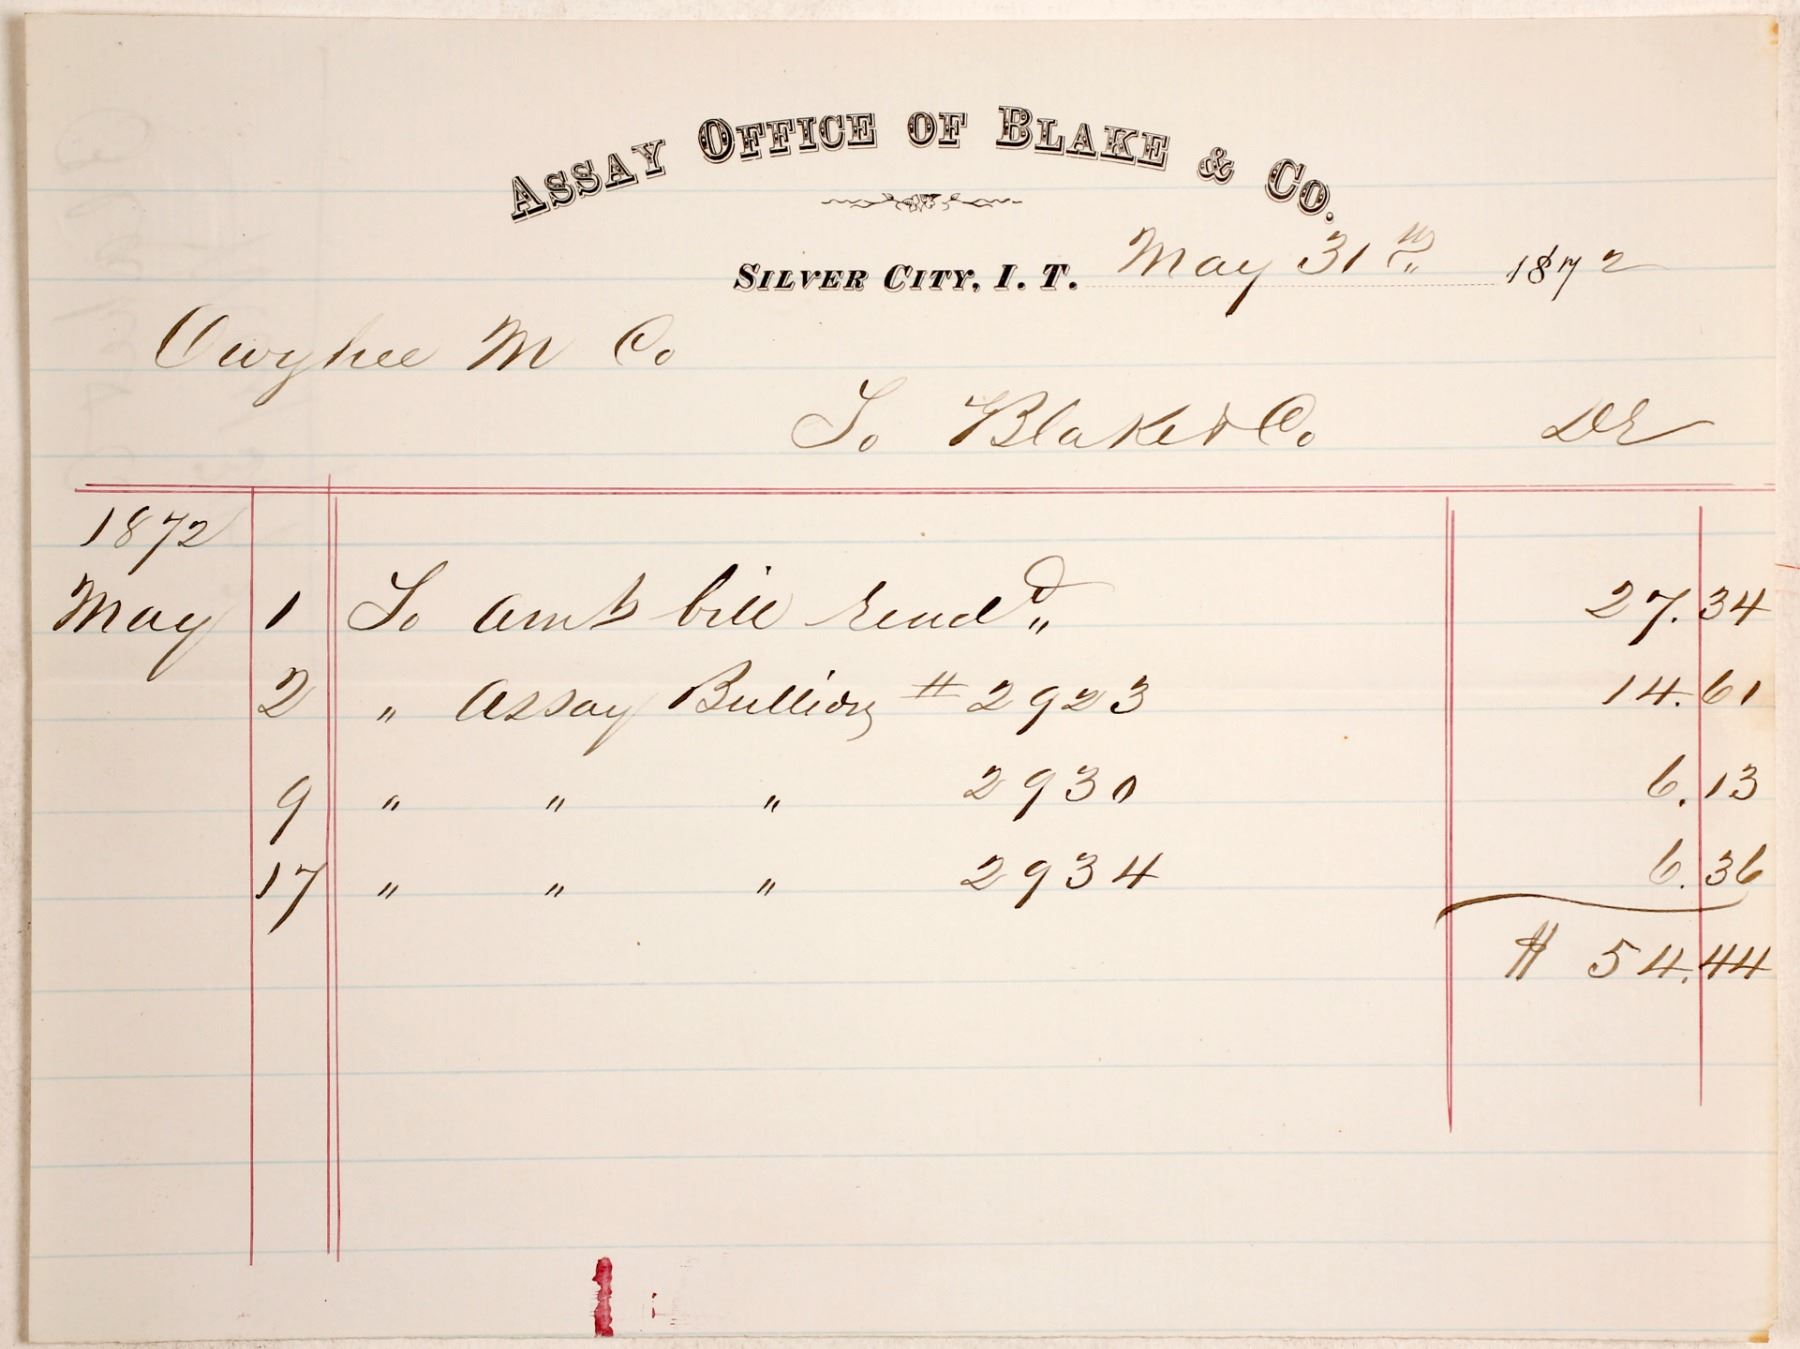 ASSAY OFFICE OF BLAKE & CO.
SILVER CITY, I. T. May 31st 1872
Owyhee M Co
To Blake & Co Dr
1872
May 1 To Amt bill rend'd 27.34
2 " Assay Bullion # 2923 14.61
9 " " " 2930 6.13
17 " " " 2934 6.36
$ 54.44